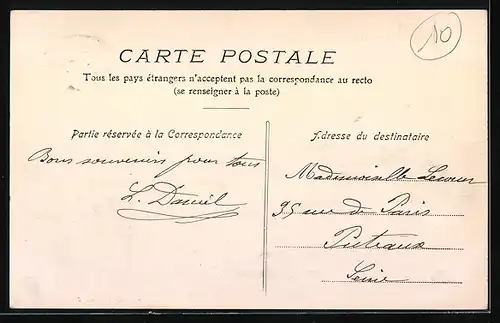 10
CARTE POSTALE
Tous les pays étrangers n'acceptent pas la correspondance au recto
(se renseigner à la poste)
Partie réservée à la Correspondance
Bons souvenirs pour tous
L. Daniel
Adresse du destinataire
Mademoiselle Lecoeur
95 rue de Paris
Puteaux
Seine